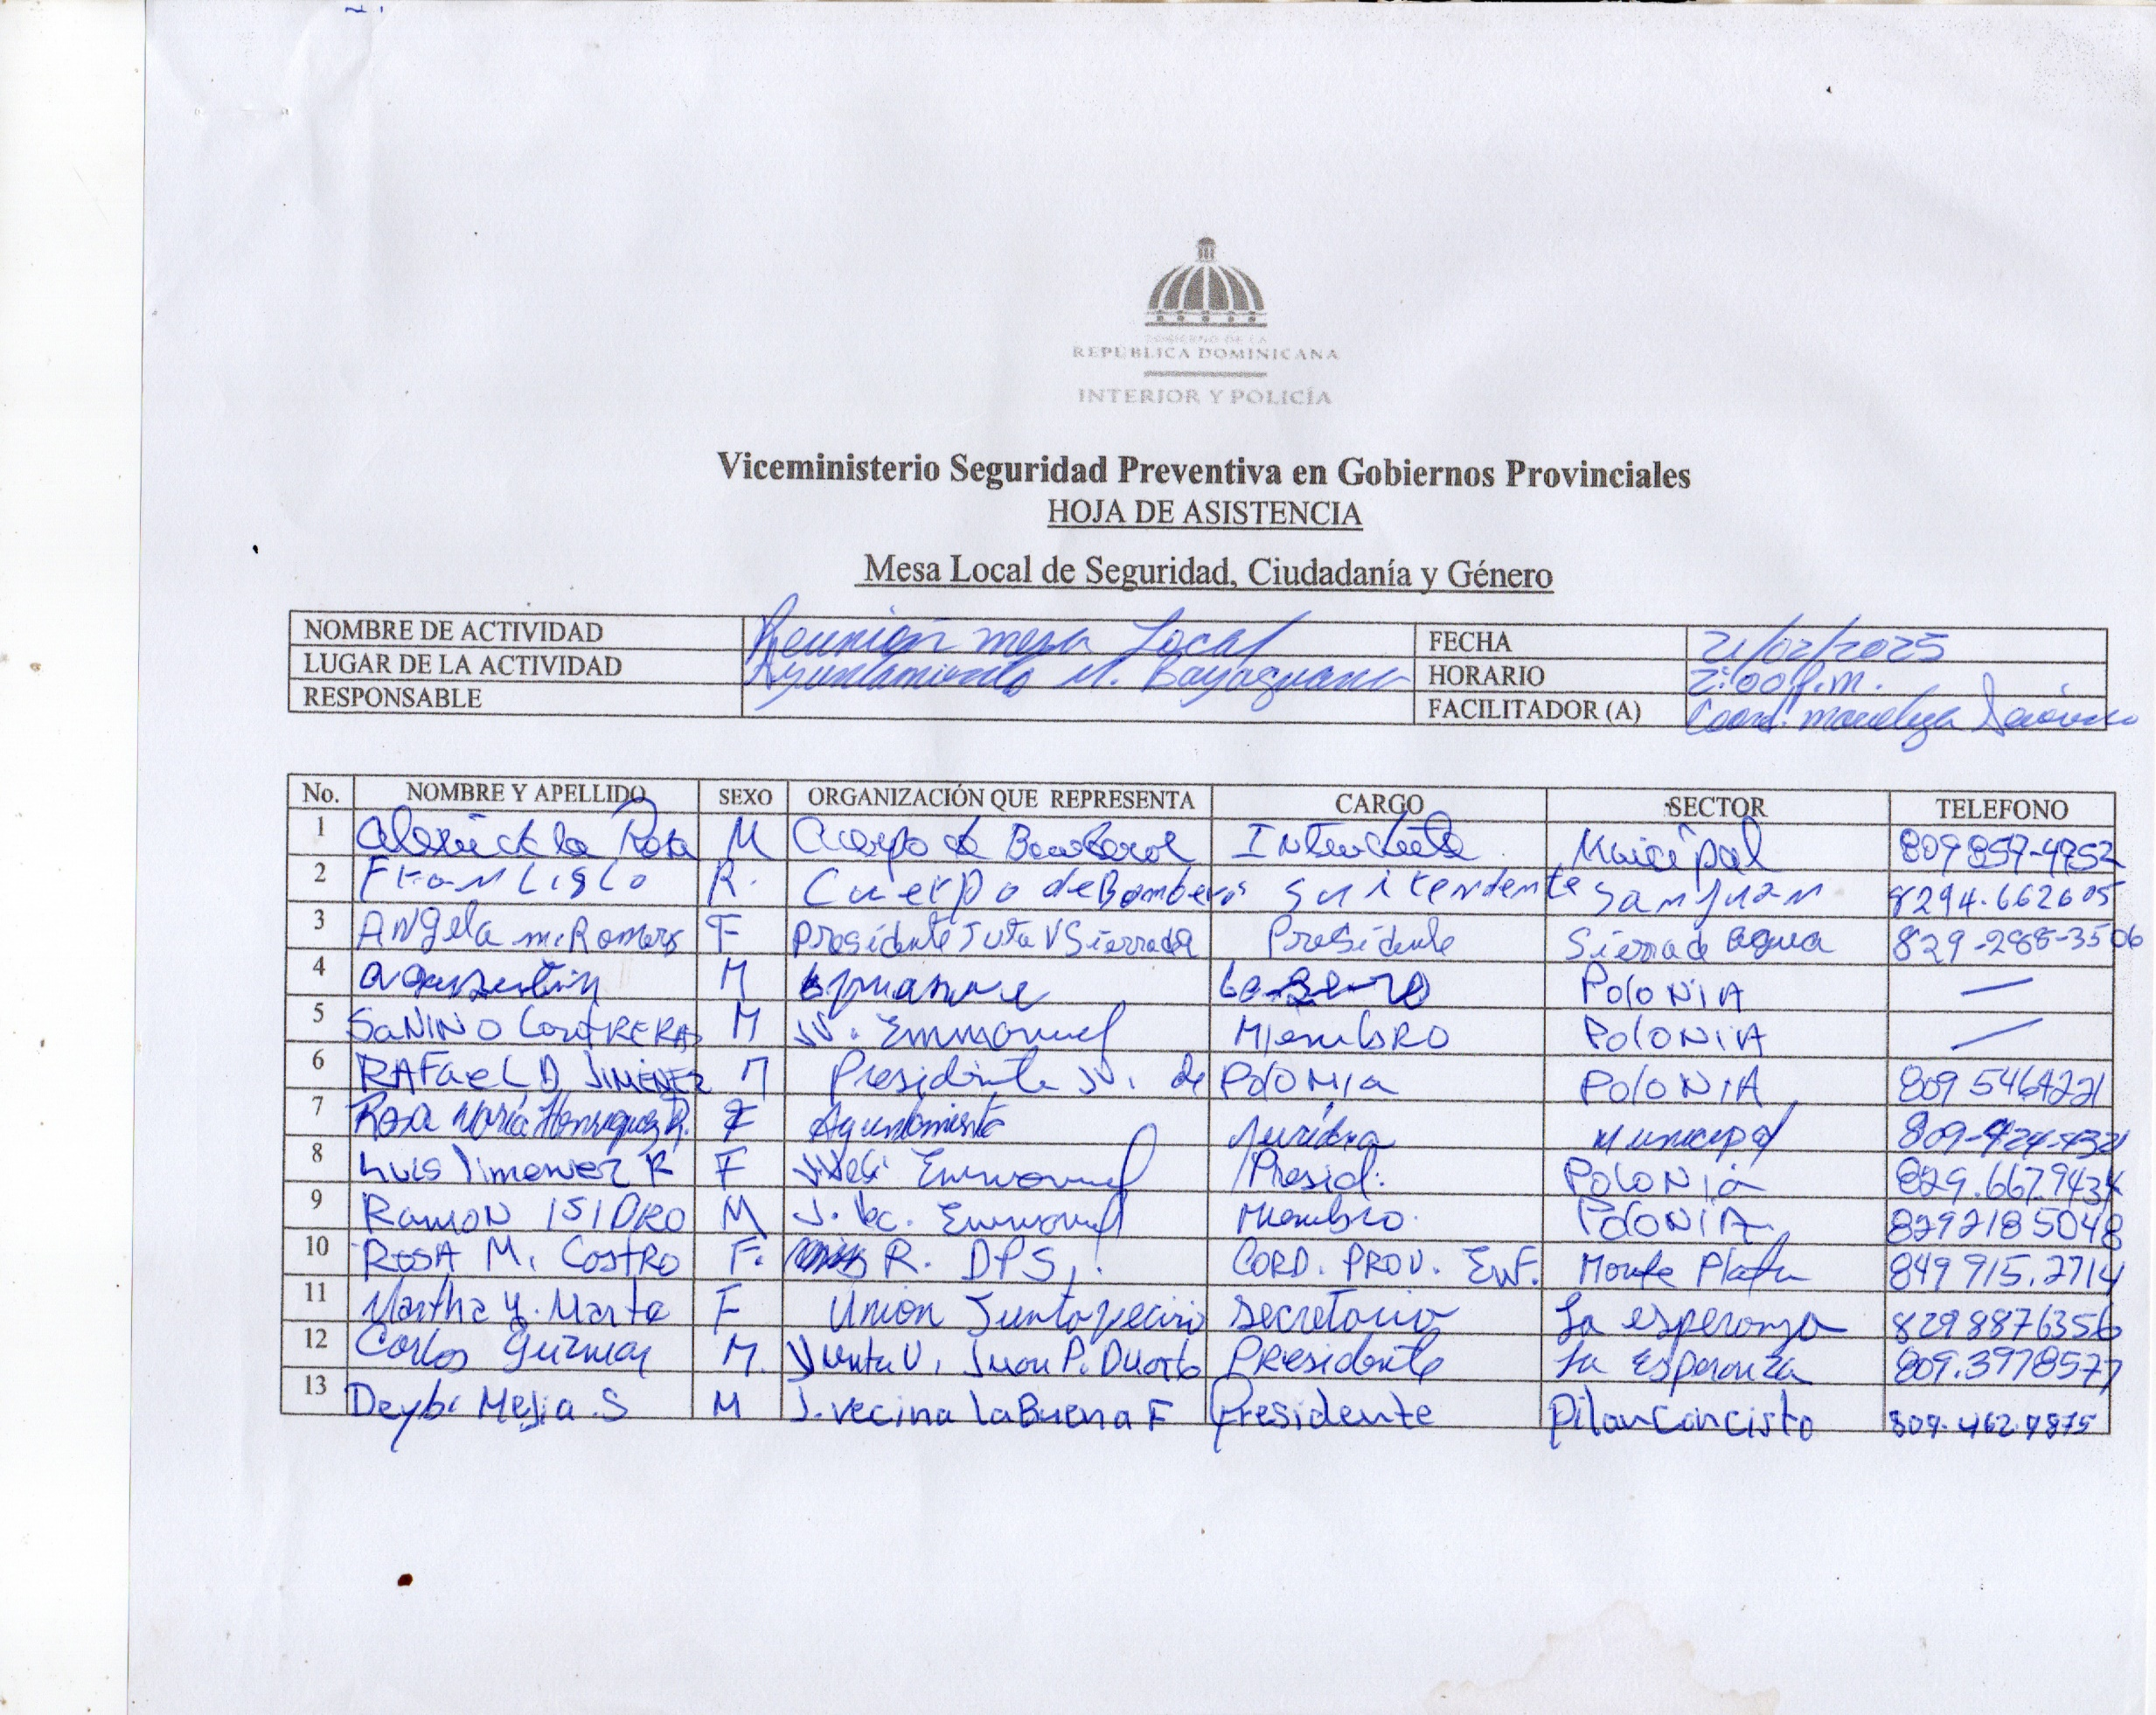 GOBIERNO DE LA
REPÚBLICA DOMINICANA
INTERIOR Y POLICÍA
Viceministerio Seguridad Preventiva en Gobiernos Provinciales
HOJA DE ASISTENCIA
Mesa Local de Seguridad, Ciudadanía y Género
NOMBRE DE ACTIVIDAD Reunión mesa Local FECHA 21/02/2025
LUGAR DE LA ACTIVIDAD Ayuntamiento M. Bayaguana HORARIO 2:00 p.m.
RESPONSABLE FACILITADOR (A) Coord.
No. NOMBRE Y APELLIDO SEXO ORGANIZACIÓN QUE REPRESENTA CARGO SECTOR TELEFONO
1 de la Rosa M Cuerpo de Intendente Municipal 809 859-4952
2 R. Cuerpo de Bomberos San Juan 8294.662605
3 Angela m. Romero F Presidente Juta V Sierra de Presidente Sierra de agua 829-288-3506
4 M PoloNiA —
5 SaNINO CoNtRERAS M JV. Emmanuel MiembRO PoloNiA —
6 RAFaeL D. JIMENEZ M Presidente JV. de PoloNia PoloNiA 809 5464221
7 Rosa María Henriquez R. F Ayuntamiento Juridica Municipal
8 Luis Jimenez R F Emmanuel Presid. PoloNia 829.667.9434
9 Ramon ISIDRO M J. Vec. Emmanuel Miembro. PoloNiA 829 218 5048
10 ROSA M. CastRo F. R. DPS. CORD. PROV. ENF. Monte Plata 849 915.2714
11 Martha Y. Marte F Union Junta vecino Secretario La esperanza 829 8876356
12 Carlos Guzman M. Junta V. Juan P. Duarte Presidente La Esperanza 809.3978577
13 Deybi Mejia S M J. vecina la Buena F Presidente Pilancancisto 809-462-9875